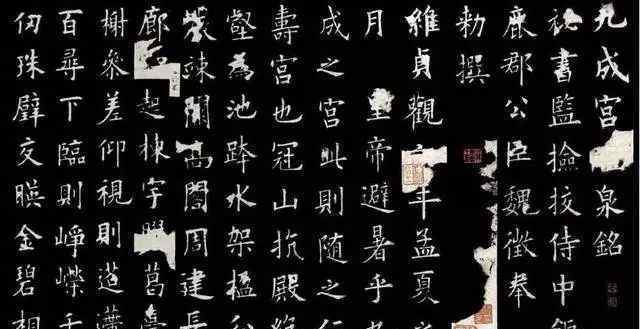 九成宮泉銘
祕書監撿挍侍中
鹿郡公臣魏徵奉
勑撰
維貞觀年孟夏之
月皇帝避暑乎九
成之宮此則随之仁
壽宮也冠山抗殿絶
壑為池跨水架楹分
竦闕高閣周建長
廊起棟宇葛臺
榭參差仰視則迢
百尋下臨則崢嶸千
仞珠璧交暎金碧相